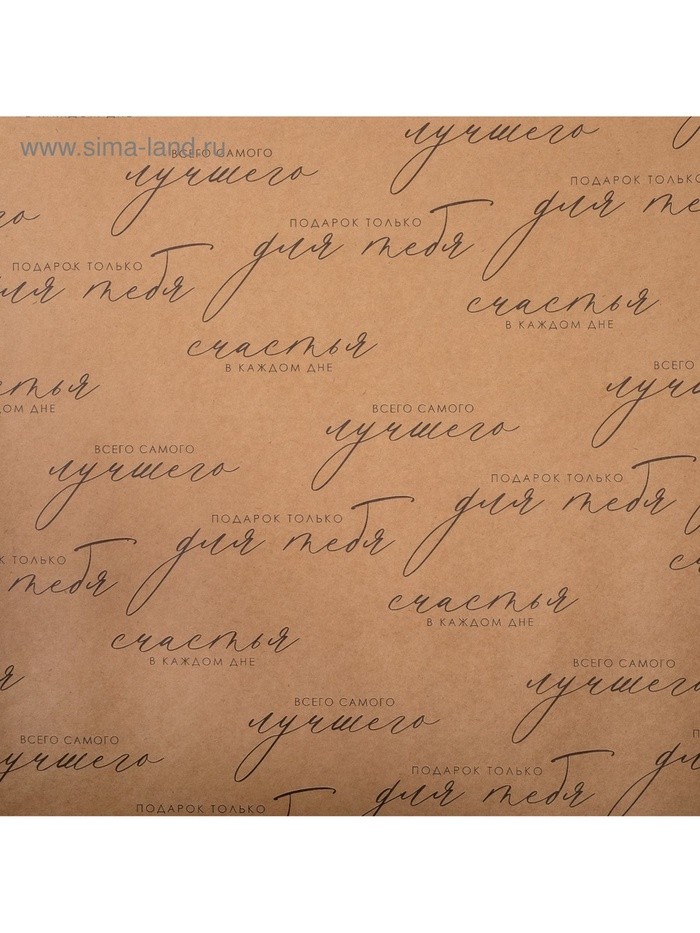 В КАЖДОМ ДНЕ
www.sima-land.ru
лучшего
ВСЕГО САМОГО
лучшего
ПОДАРОК ТОЛЬКО
для те
ПОДАРОК ТОЛЬКО
для тебя
ПОДАРОК ТОЛЬКО
для тебя
счастья
В КАЖДОМ ДНЕ
счастья
В КАЖДОМ ДНЕ
стья
ДОМ ДНЕ
ВСЕГО
лучш
ВСЕГО САМОГО
лучшего
ВСЕГО САМОГО
лучшего
ПОДАРОК ТОЛЬКО
для тебя
ПОДАРОК ТОЛЬКО
для тебя
К ТОЛЬКО
тебя
счастья
В КАЖДОМ ДНЕ
счастья
В КАЖДОМ ДНЕ
ВСЕГО САМОГО
лучшего
ВСЕГО САМОГО
лучшего
ВСЕГО САМОГО
лучшего
ПОДАРОК ТОЛЬКО
для тебя
ПОДАРОК ТОЛЬКО